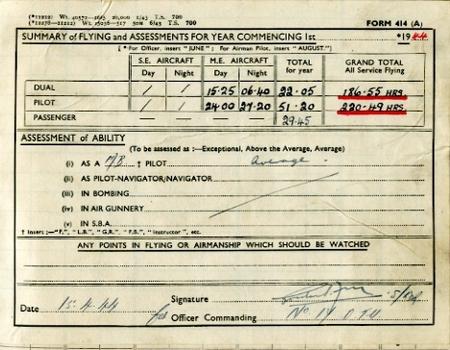 (*11112) Wt. 40570—1095 20,000 1/43 T.S. 700
(*11178—11212) Wt. 15038—517 50M 6/43 T.S. 700
FORM 414 (A)
SUMMARY of FLYING and ASSESSMENTS FOR YEAR COMMENCING 1st *1944
[* For Officer, insert "JUNE"; For Airman Pilot, insert "AUGUST."]
S.E. AIRCRAFT M.E. AIRCRAFT TOTAL for year GRAND TOTAL All Service Flying
Day Night Day Night
DUAL / / 15.25 06.40 22.05 186.55 HRS.
PILOT / / 24.00 27.20 51.20 220.49 HRS.
PASSENGER 29.45
ASSESSMENT of ABILITY
(To be assessed as :—Exceptional, Above the Average, Average)
(i) AS A M/B † PILOT Average.
(ii) AS PILOT-NAVIGATOR/NAVIGATOR
(iii) IN BOMBING
(iv) IN AIR GUNNERY
(v) IN S.B.A.
† Insert :—"F.", "L.B.", "G.R." "F.B." "Instructor", etc.
ANY POINTS IN FLYING OR AIRMANSHIP WHICH SHOULD BE WATCHED
Signature
Date 15.4.44
for Officer Commanding No 14 O.T.U.